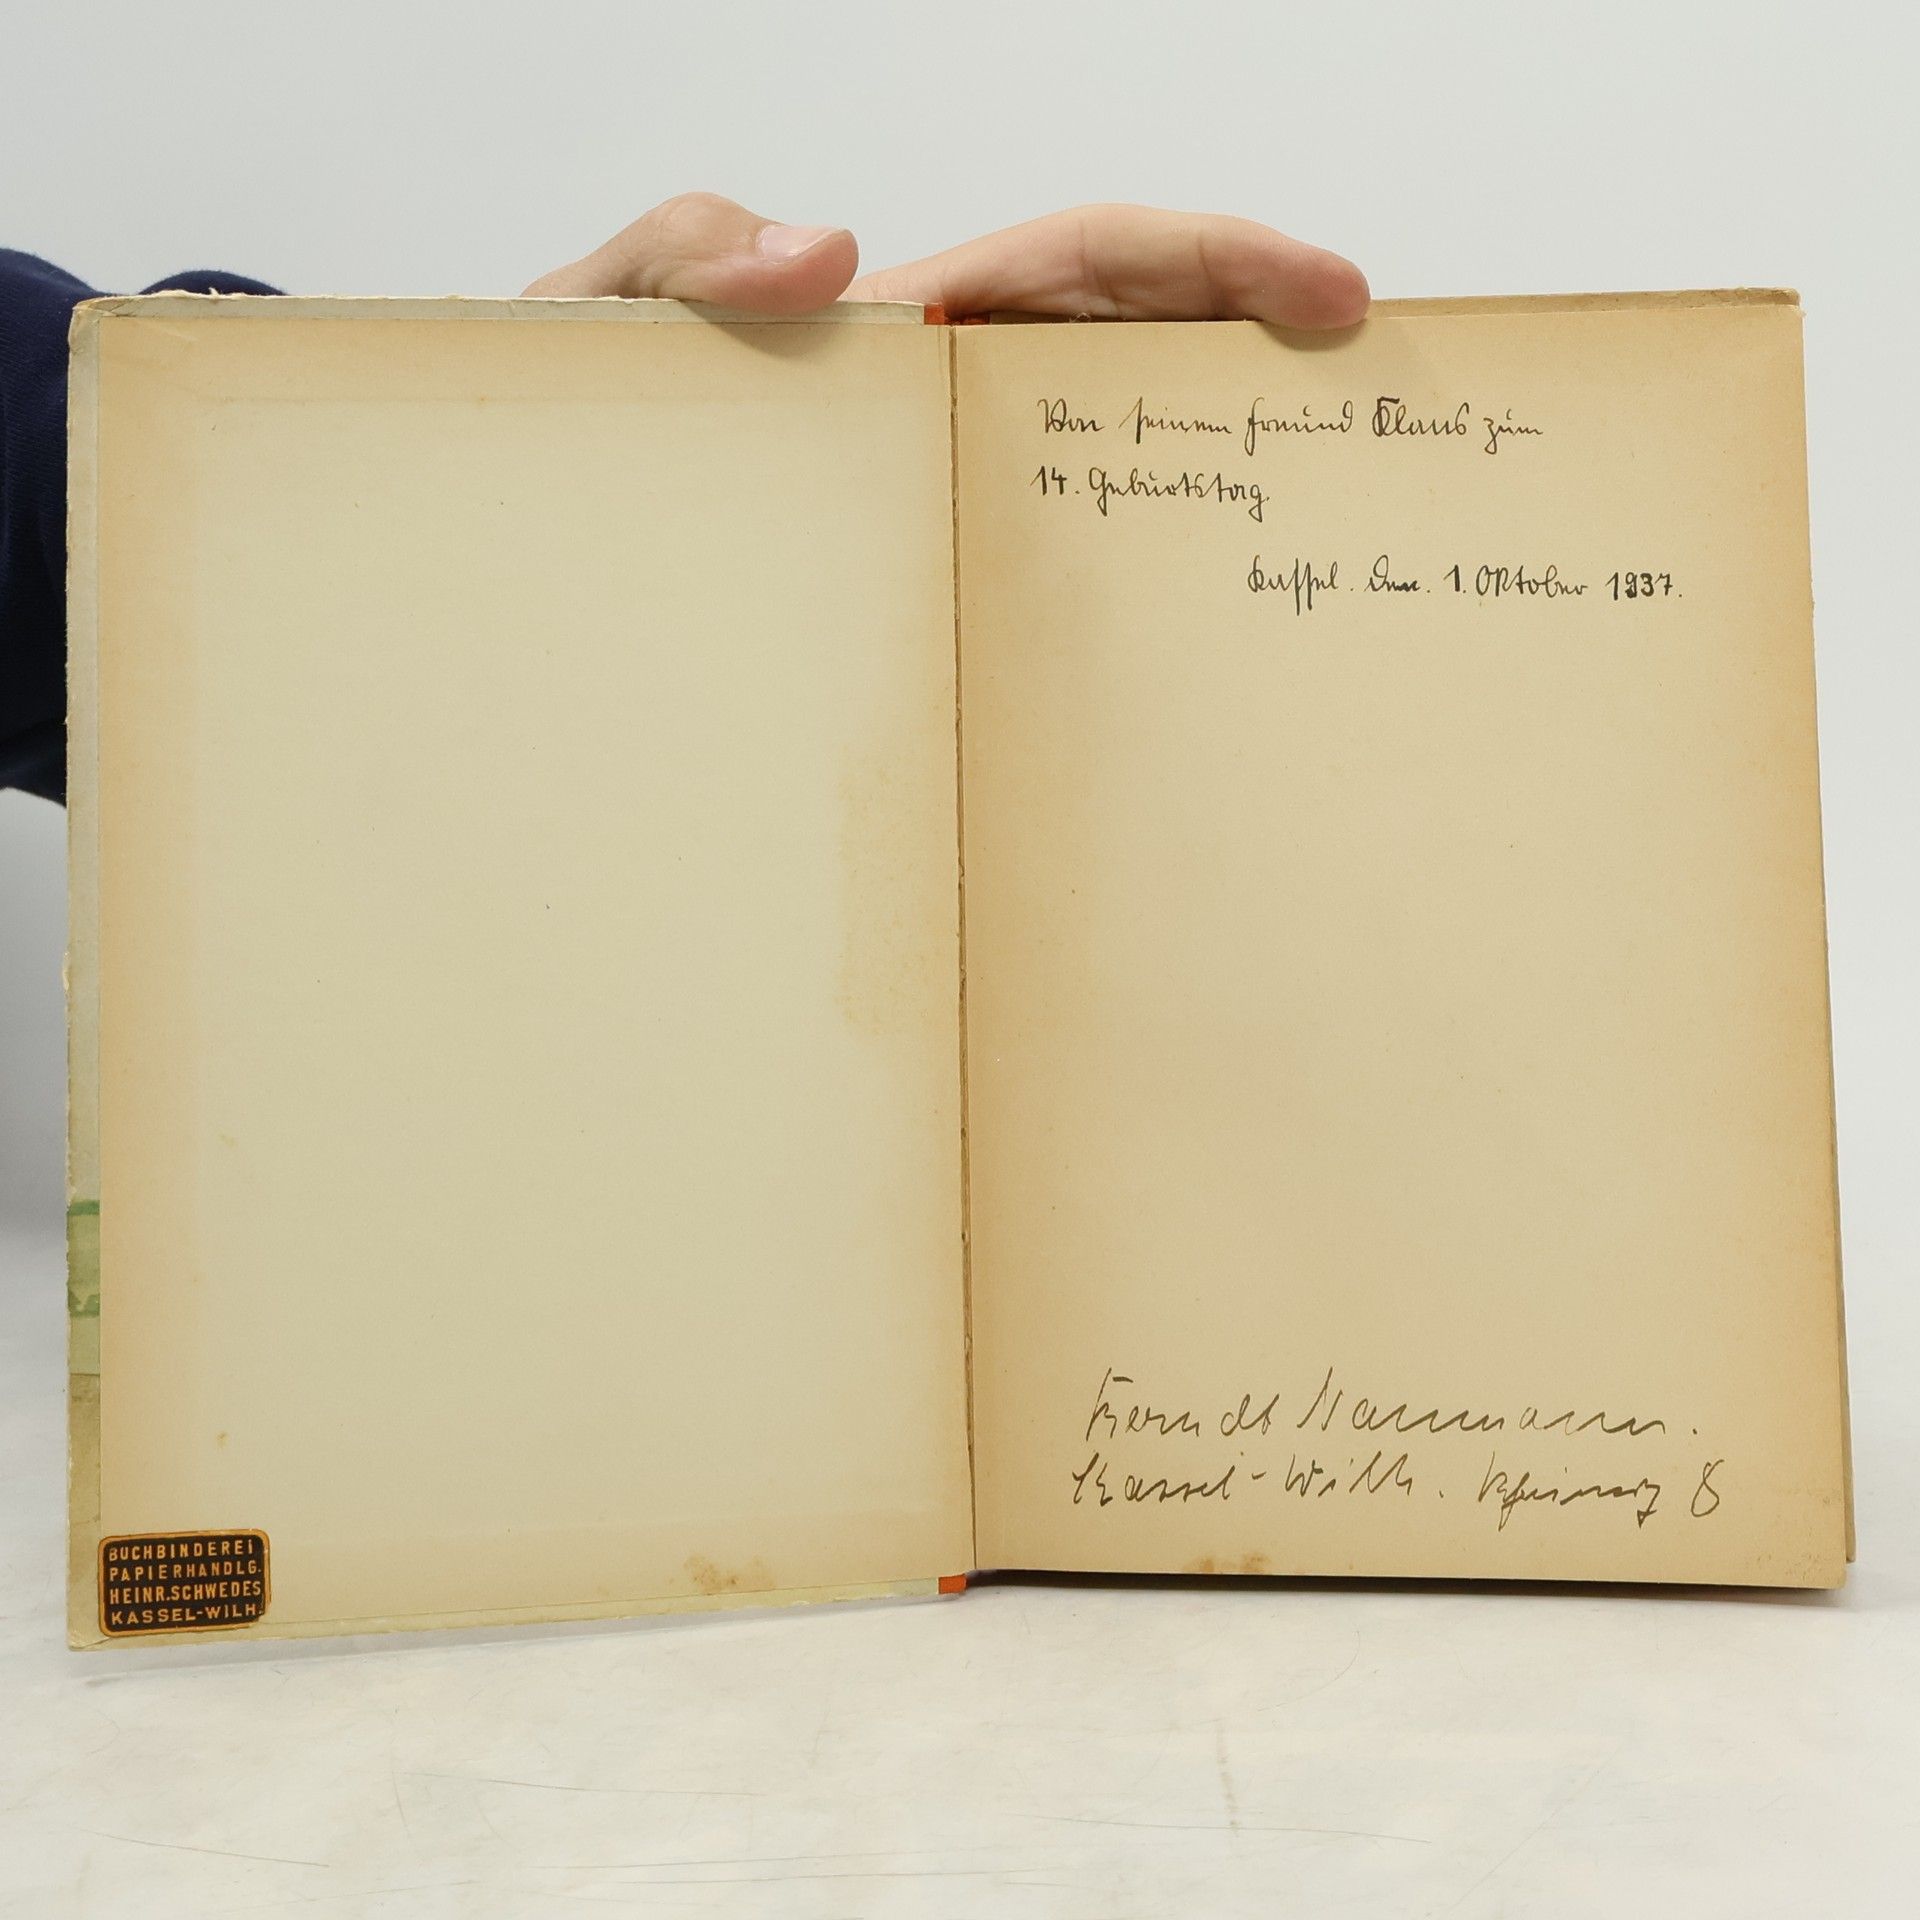 BUCHBINDEREI
PAPIERHANDLG.
HEINR.SCHWEDES
KASSEL-WILH.
Von seinem Freund Klaus zum
14. Geburtstag.
Kassel. den. 1. Oktober 1937.
Berndt Naumann.
Kassel-Wilh. 8